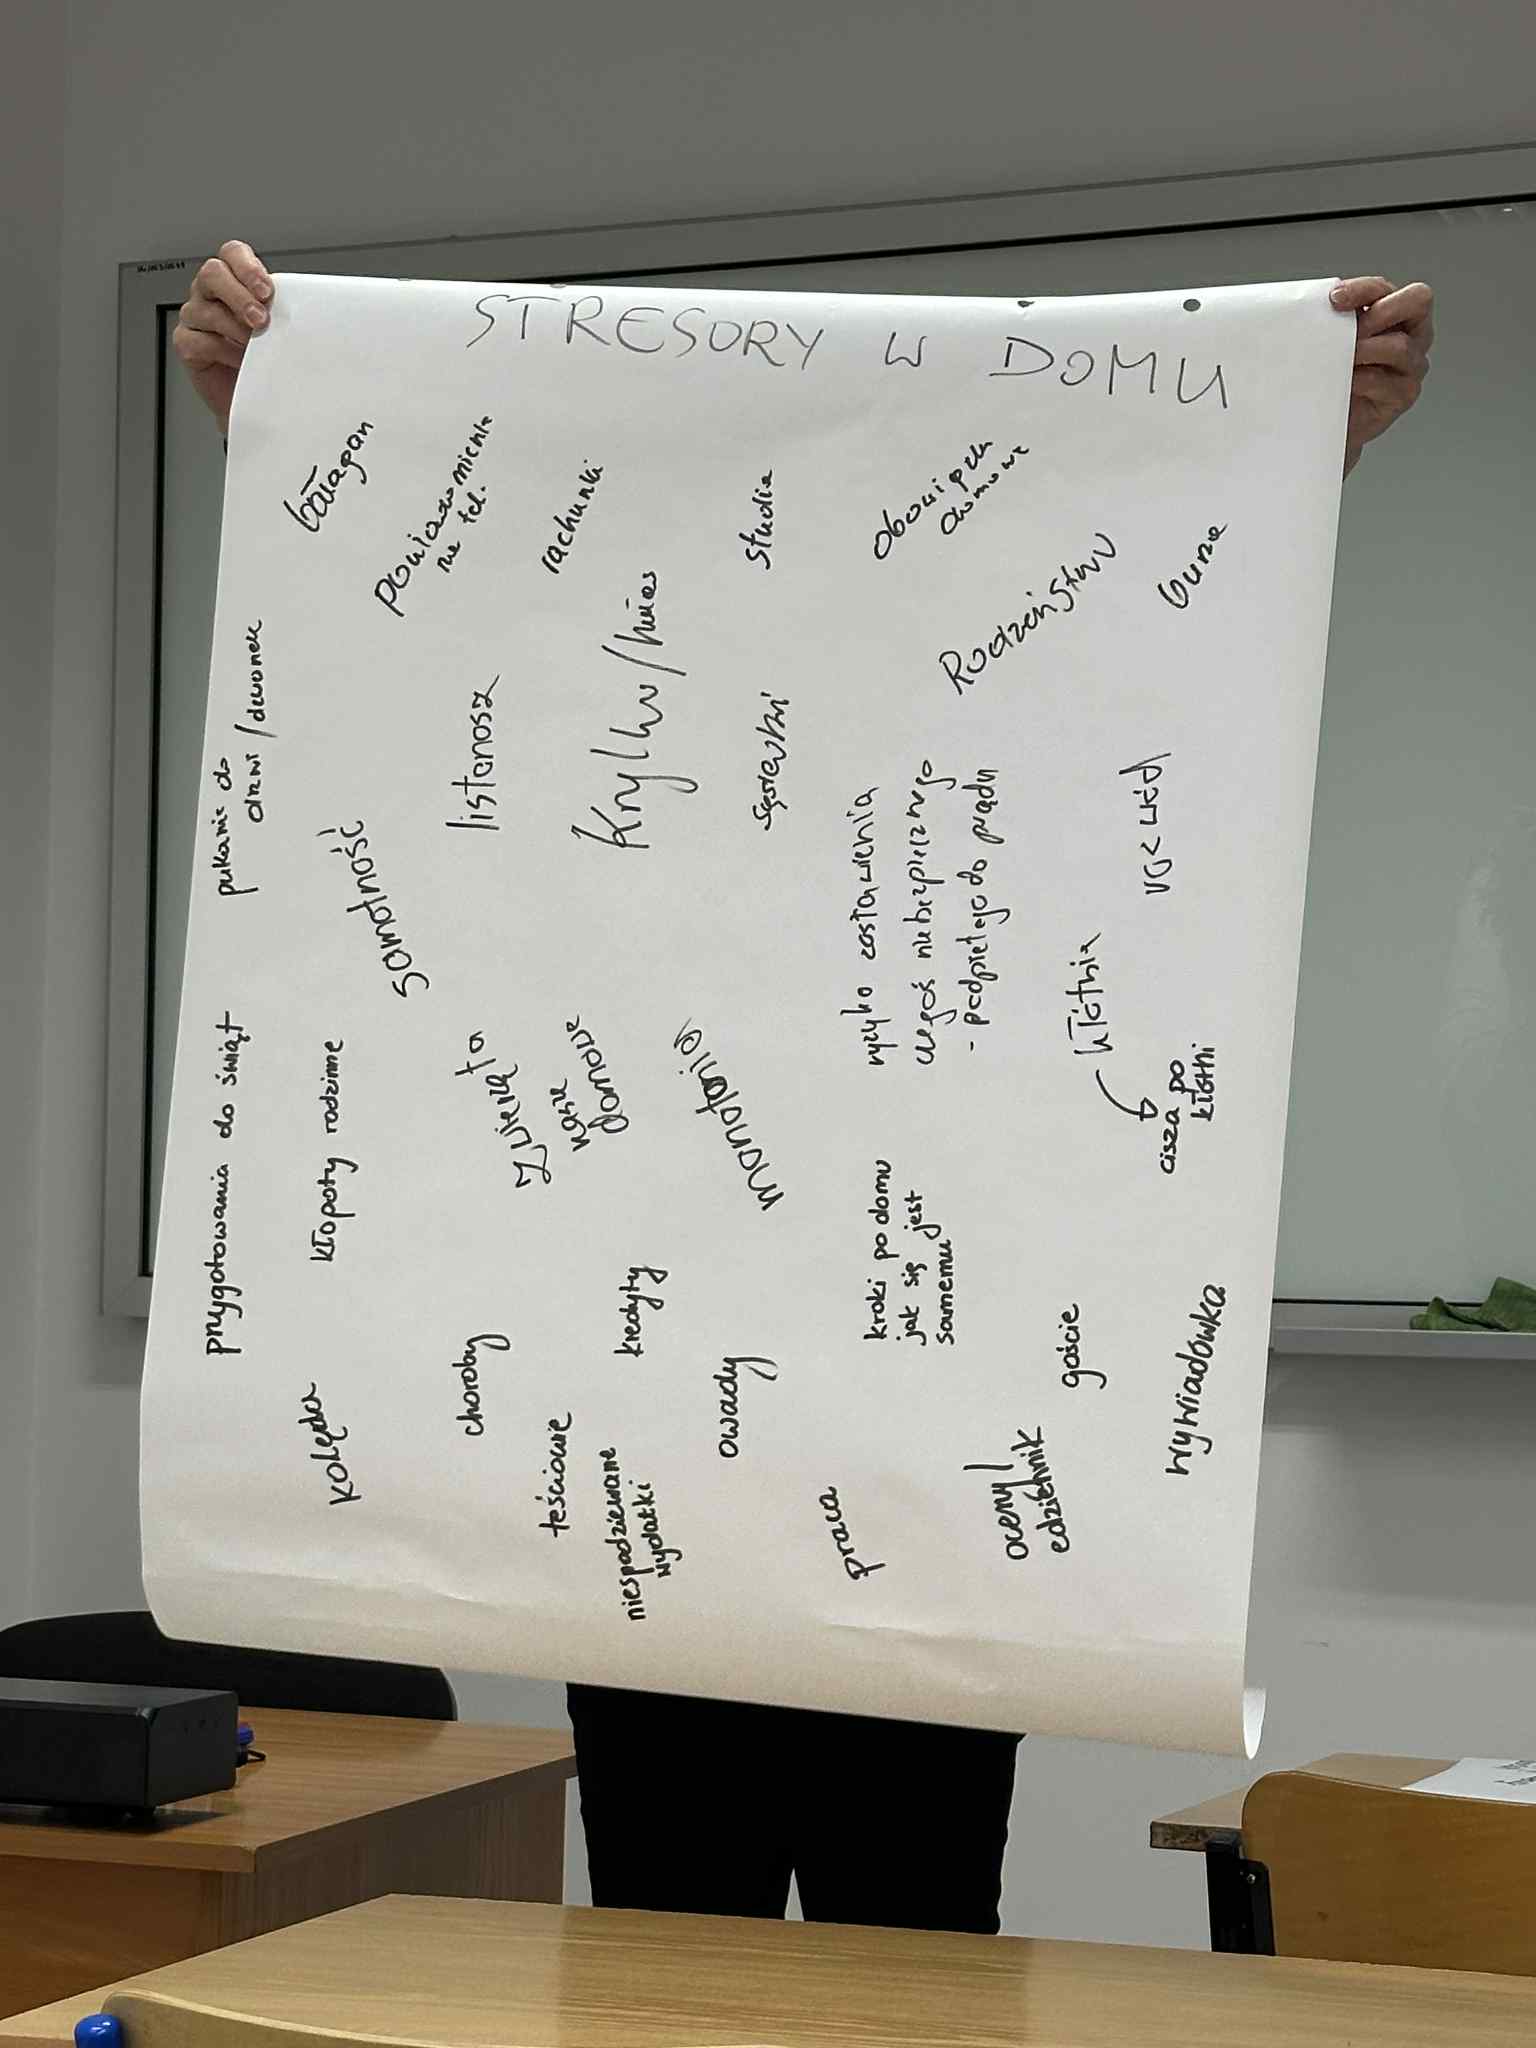 STRESORY W DOMU
bałagan
powiadomienie
na tel.
rachunki
studia
obowiązki
domowe
Rodzeństwo
burza
pukanie do
drzwi / dzwonek
samotność
listonosz
Krzyki / hałas
sąsiedzi
ryzyko zostawienia
czegoś niebezpiecznego
- podpiętego do prądu
kłótnia
cisza po
kłótni
przygotowania do świąt
kłopoty rodzinne
zwierzęta
nasze
domowe
monotonia
kroki po domu
jak się jest
samemu
kolęda
choroby
teściowie
kredyty
niespodziewane
wydatki
owady
praca
oceny /
edziennik
goście
wywiadówka